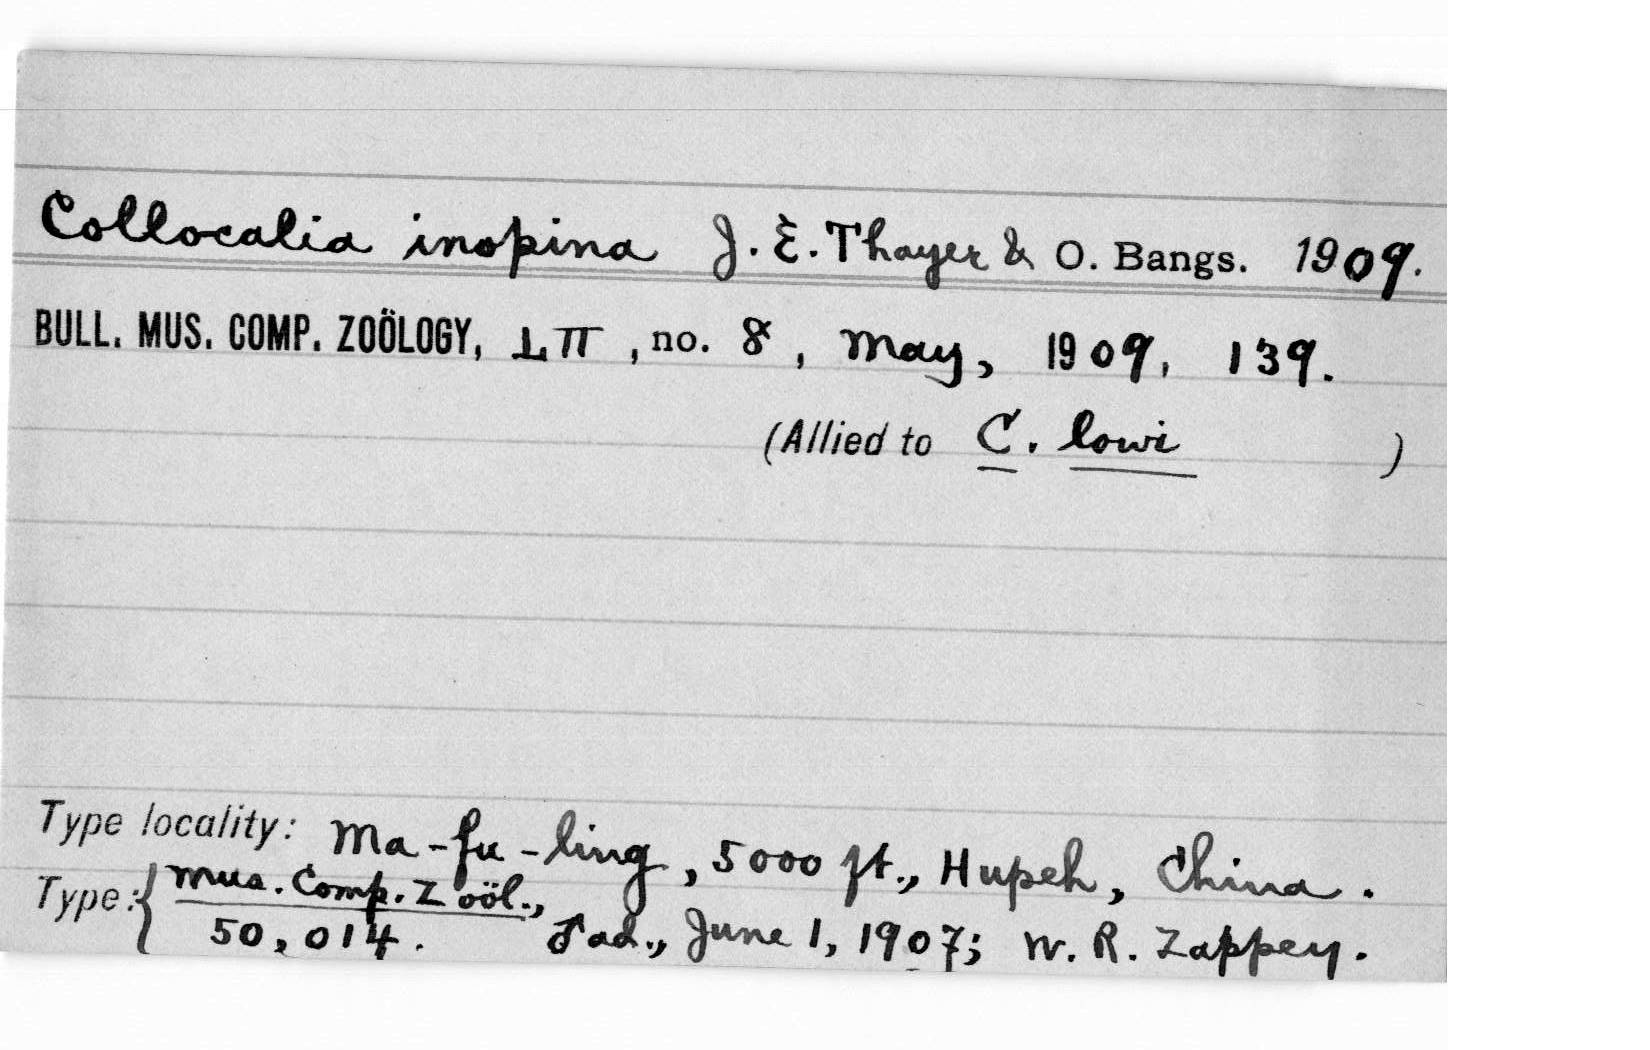 Collocalia inopina J. E. Thayer & O. Bangs. 1909.
BULL. MUS. COMP. ZOÖLOGY, LII, no. 8, May, 1909, 139.
(Allied to C. lowi )
Type locality: Ma-fu-ling, 5000 ft., Hupeh, China.
Type: { Mus. Comp. Zoöl.,
50,014. ♂ ad., June 1, 1907; W. R. Zappey.